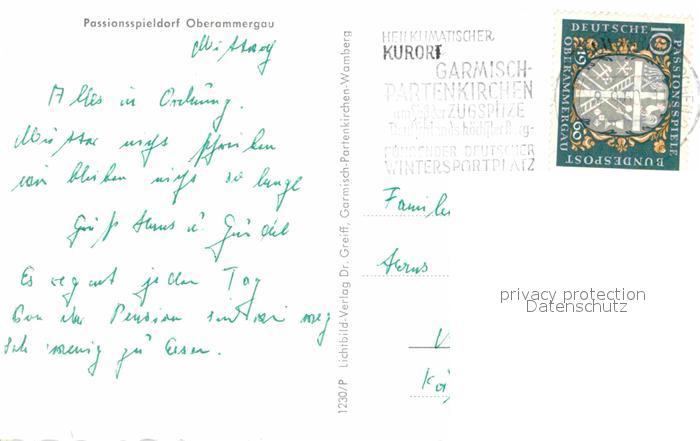 Passionsspieldorf Oberammergau
Mittag
Alles in Ordnung.
Mutter nicht schreiben
wir bleiben nicht so lange
Gruß Hans u.
Es regnet jeden Tag
Von der Pension sind wir weg
Sch wenig zu Essen.
1230/P Lichtbild-Verlag Dr. Greiff, Garmisch-Partenkirchen-Wamberg
HEILKLIMATISCHER
KURORT
GARMISCH-
PARTENKIRCHEN
am Fuß der ZUGSPITZE
Deutschlands höchster Berg-
FÜHRENDER DEUTSCHER
WINTERSPORTPLATZ
DEUTSCHE BUNDESPOST
PASSIONSSPIELE OBERAMMERGAU
10
1960
Familie
Hans
privacy protection
Datenschutz